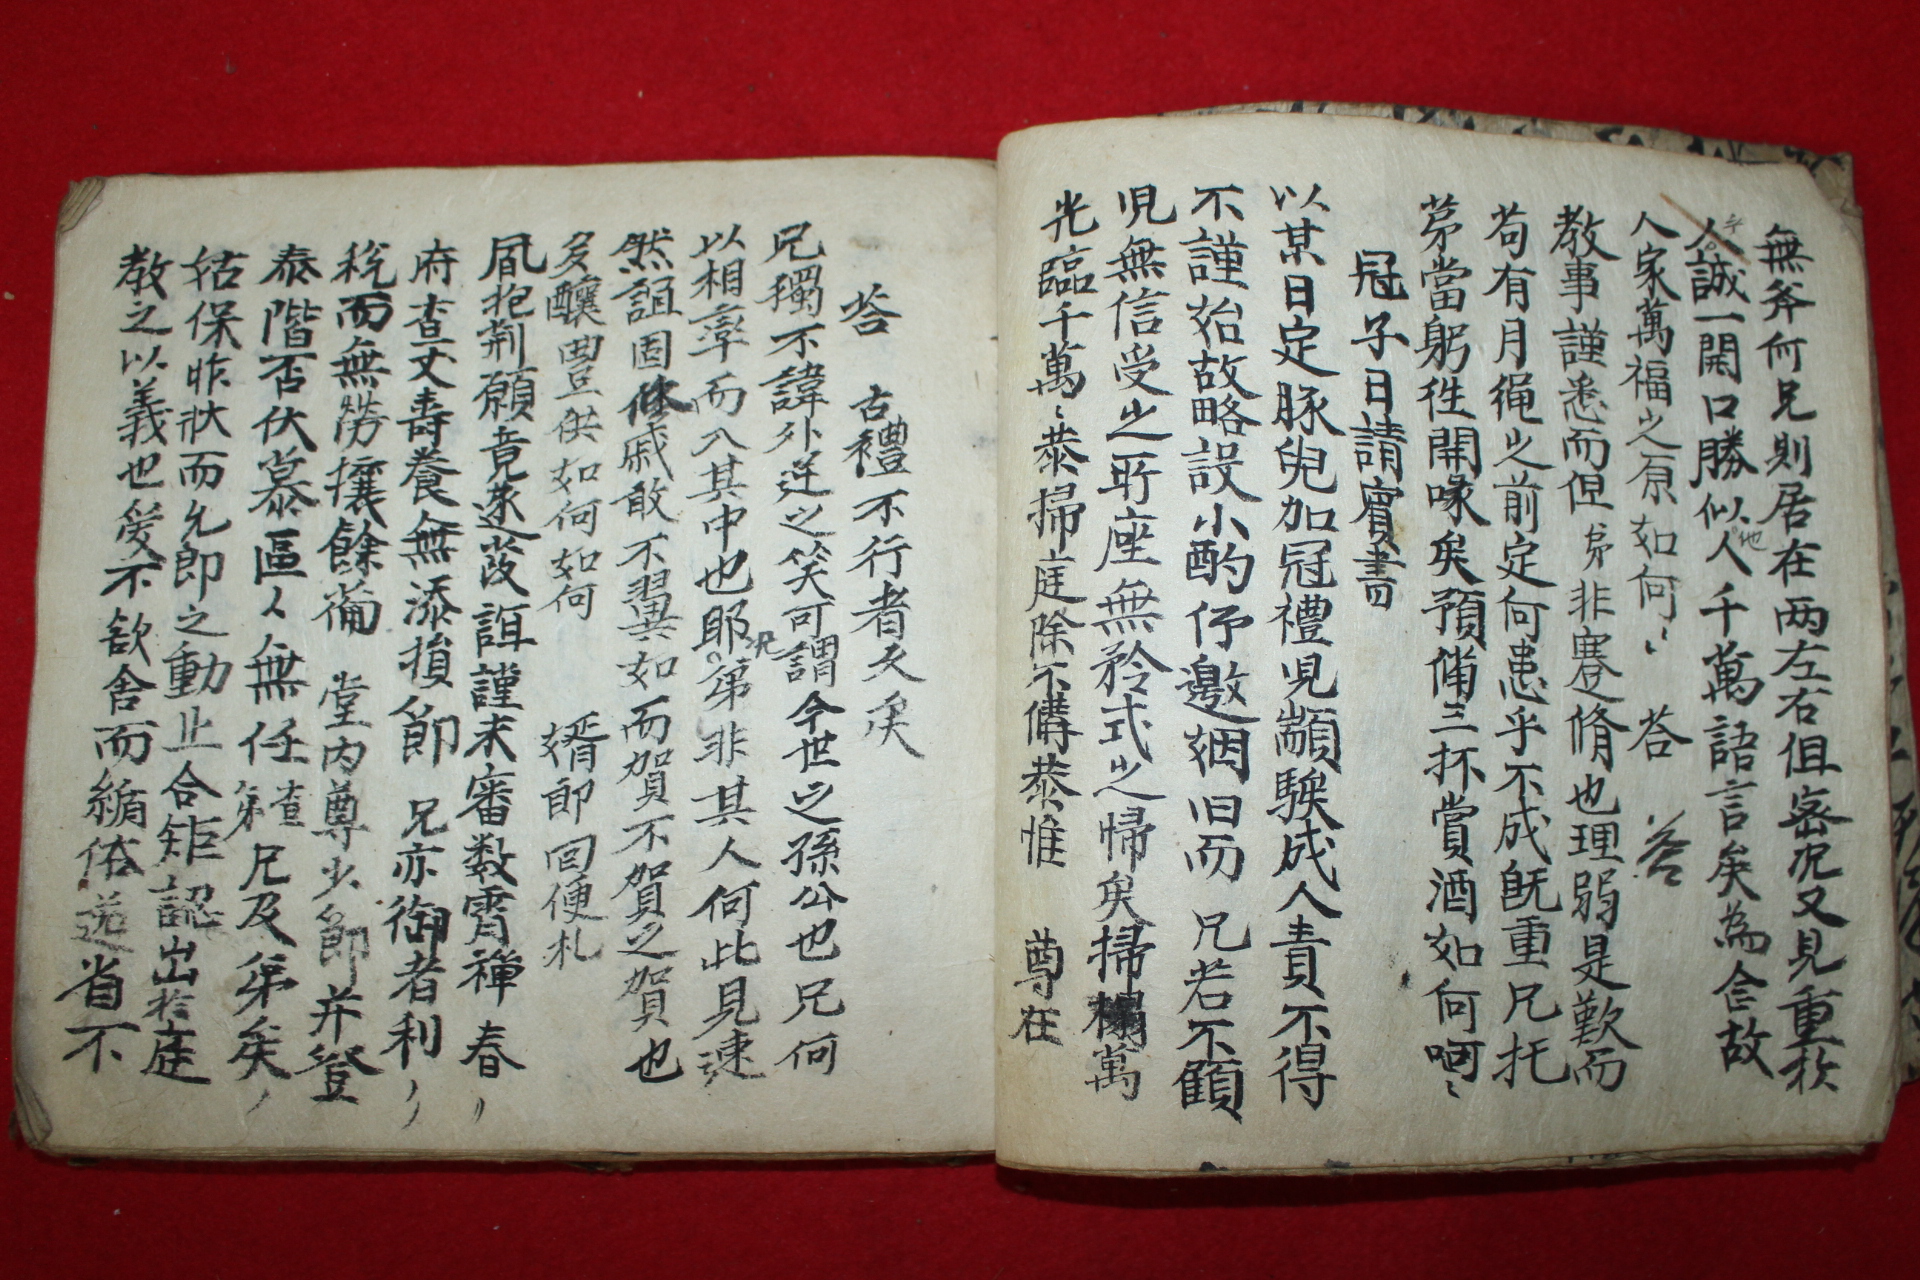 無斧何兄則居在两左右但密况又見重於
人誠一開口勝似人千萬語言矣為僉故
人家萬福之原如何〻 答 答
教事謹悉而但弟非蹇脩也理弱是歎而
苟有月繩之前定何患乎不成旣重兄托
苐當躬往開喙矣預備三杯賞酒如何呵〻
冠子日請賓書
以某日定豚兒加冠禮児顓騃成人責不得
不謹始故略設小酌伻邀姻旧而 兄若不顧
児無信受之所座無矜式之帰矣掃榻萬
光臨千萬〻恭掃庭除不備恭惟 尊在
答 古禮不行者久矣
兄獨不諱外迂之笑可謂今世之孫公也兄何
以相率而入其中也耶况苐非其人何此見速
然誼固修戚敢不翼如而賀不賀之賀也
多釀豊供如何如何 婿郞回便札
凮抱荆願竟遂葭誼謹未審数宵禫 春
府查丈壽養無添損節 兄亦御者利
稅而無勞攘餘葡 堂內尊少節并登
泰階否伏慕區〻無任 弟查 兄及苐矣
姑保昨狀而允郞之動止合矩認出於庭
敎之以義也爱不欲舍而循俗送省不